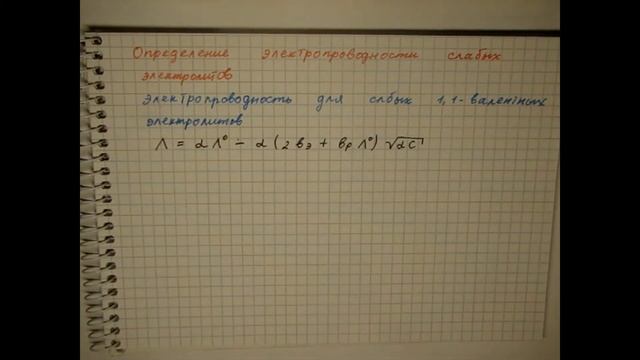 Определение электропроводности слабых
электролитов
Электропроводность для слбых 1,1-валентных
электролитов
Λ = αΛ° - α (2 вэ + вр Λ°) √αc